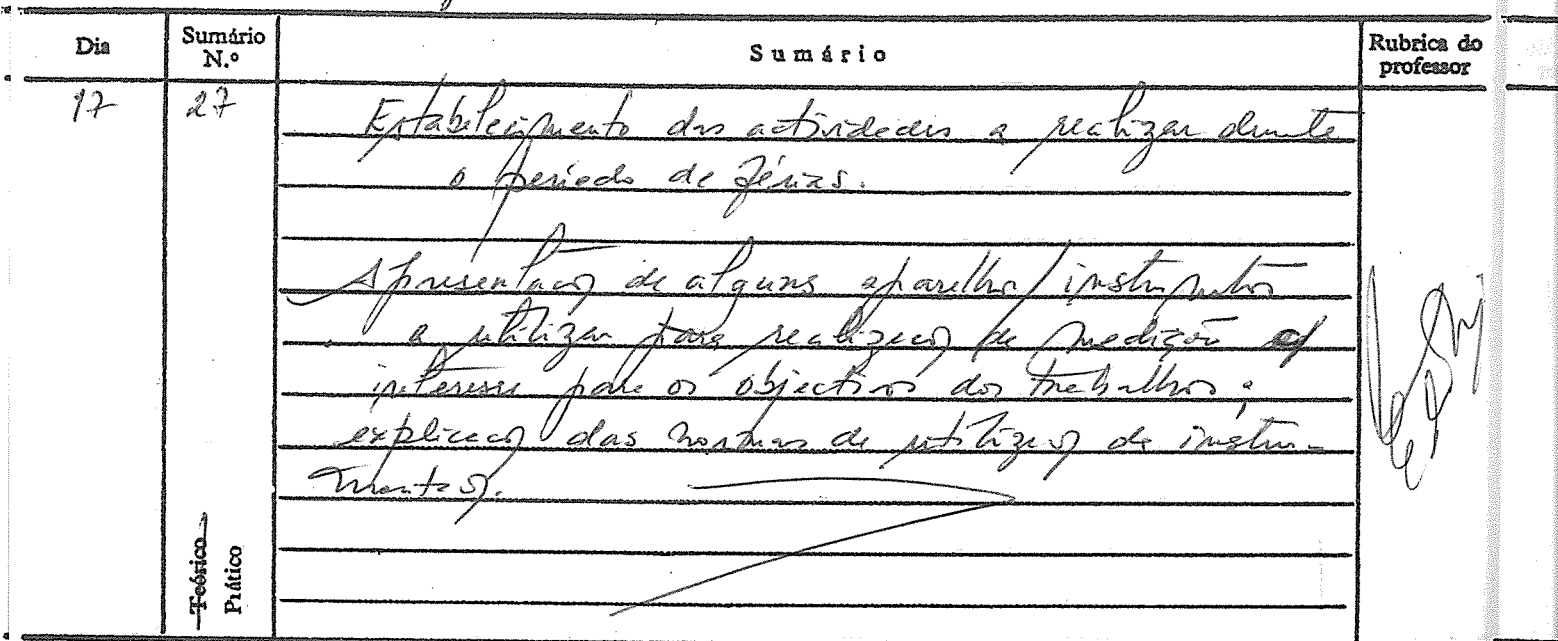 Dia Sumário N.º Sumário Rubrica do professor
17 27 Estabelecimento das actividades a realizar durante
o período de férias.
Apresentação de alguns aparelhos/instrumentos
a utilizar para realização de medições
interesse para os objectivos dos trabalhos;
explicação das normas de utilização de instru-
mentos.
Teórico
Prático